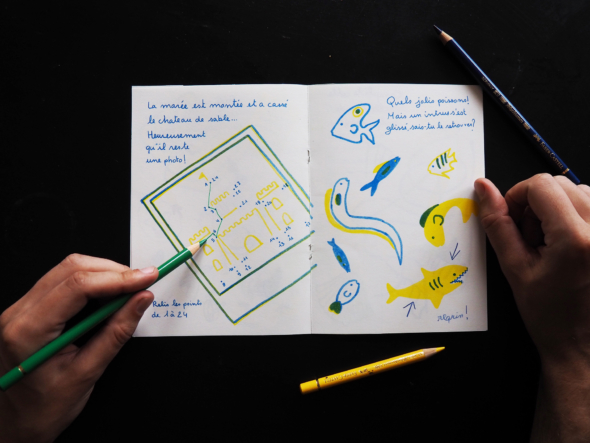 La marée est montée et a cassé
le chateau de sable...
Heureusement
qu'il reste
une photo!
Relie les points
de 1 à 24
Quels jolis poissons!
Mais un intrus s'est
glissé, sais-tu le retrouver?